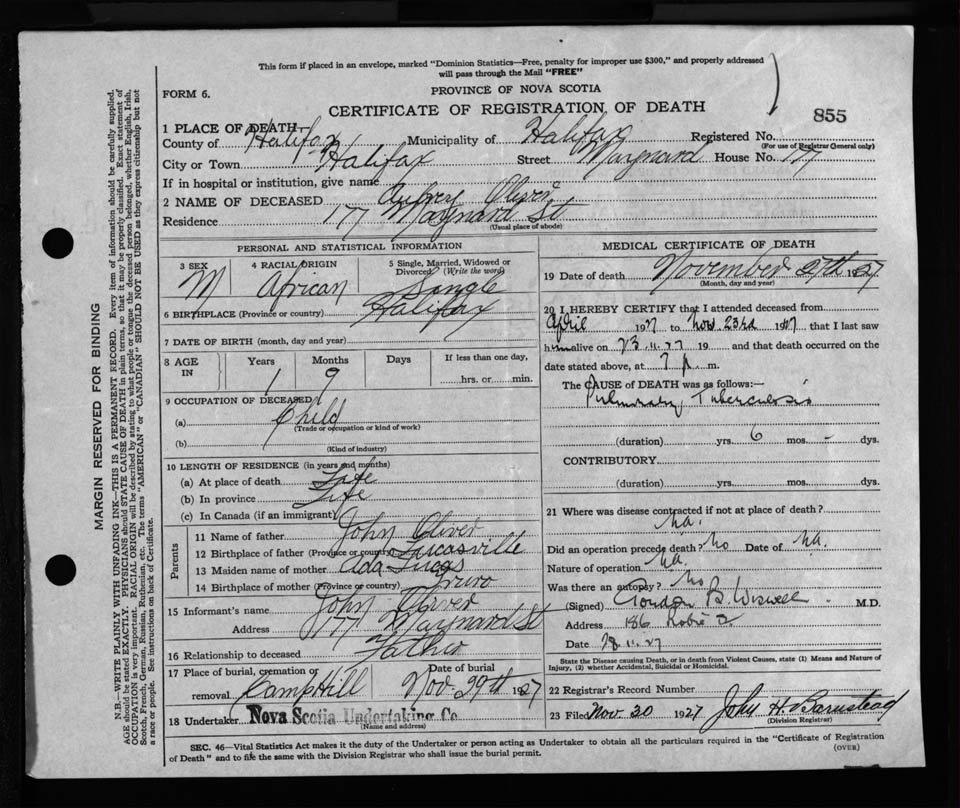 This form if placed in an envelope, marked "Dominion Statistics—Free, penalty for improper use $300," and properly addressed
will pass through the Mail "FREE"
FORM 6.
PROVINCE OF NOVA SCOTIA
CERTIFICATE OF REGISTRATION OF DEATH
855
1 PLACE OF DEATH—
County of Halifax Municipality of Halifax Registered No.
(For use of Registrar General only)
City or Town Halifax Street Maynard House No. 177
If in hospital or institution, give name
2 NAME OF DECEASED Aubrey Oliver
Residence 177 Maynard St
(Usual place of abode)
PERSONAL AND STATISTICAL INFORMATION
3 SEX M
4 RACIAL ORIGIN African
5 Single, Married, Widowed or
Divorced (Write the word)
Single
6 BIRTHPLACE (Province or country) Halifax
7 DATE OF BIRTH (month, day and year)
8 AGE IN
Years Months Days If less than one day,
1 9 hrs. or min.
9 OCCUPATION OF DECEASED
(a) Child
(Trade or occupation or kind of work)
(b)
(Kind of industry)
10 LENGTH OF RESIDENCE (in years and months)
(a) At place of death Life
(b) In province Life
(c) In Canada (if an immigrant)
Parents
11 Name of father John Oliver
12 Birthplace of father (Province or country) Lucasville
13 Maiden name of mother Ada
14 Birthplace of mother (Province or country) Truro
15 Informant's name John Oliver
Address 177 Maynard St
16 Relationship to deceased Father
17 Place of burial, cremation or
removal Camp Hill
Date of burial
Nov. 29th 1927
18 Undertaker Nova Scotia Undertaking Co
(Name and address)
MEDICAL CERTIFICATE OF DEATH
19 Date of death November 27th 1927
(Month, day and year)
20 I HEREBY CERTIFY that I attended deceased from
April 1927 to Nov 23rd 1927 that I last saw
him alive on 23.11.27 19 and that death occurred on the
date stated above, at 7 p. m.
The CAUSE OF DEATH was as follows:—
Pulmonary Tuberculosis
(duration) yrs. 6 mos. - dys.
CONTRIBUTORY.
(duration) yrs. mos. dys.
21 Where was disease contracted if not at place of death?
na.
Did an operation precede death? No Date of na.
Nature of operation na.
Was there an autopsy? No
(Signed) Gordon B. Wiswell M.D.
Address 186 Robie
Date 28.11.27
State the Disease causing Death, or in death from Violent Causes, state (1) Means and Nature of
Injury, (2) whether Accidental, Suicidal or Homicidal.
22 Registrar's Record Number
23 Filed Nov. 30 1927 John H. Barnstead
(Division Registrar)
SEC. 46—Vital Statistics Act makes it the duty of the Undertaker or person acting as Undertaker to obtain all the particulars required in the "Certificate of Registration
of Death" and to file the same with the Division Registrar who shall issue the burial permit.
(OVER)
MARGIN RESERVED FOR BINDING
N.B.—WRITE PLAINLY WITH UNFADING INK—THIS IS A PERMANENT RECORD. Every item of information should be carefully supplied.
AGE should be stated EXACTLY. PHYSICIANS should STATE CAUSE OF DEATH in plain terms, so that it may be properly classified. Exact statement of
OCCUPATION is very important. RACIAL ORIGIN will be described by stating to what people or tongue the deceased person belonged, whether English, Irish,
Scotch, French, German, Russian, Ruthenian, etc. The terms "AMERICAN" or "CANADIAN" SHOULD NOT BE USED as they express citizenship but not
a race or people. See instructions on back of Certificate.